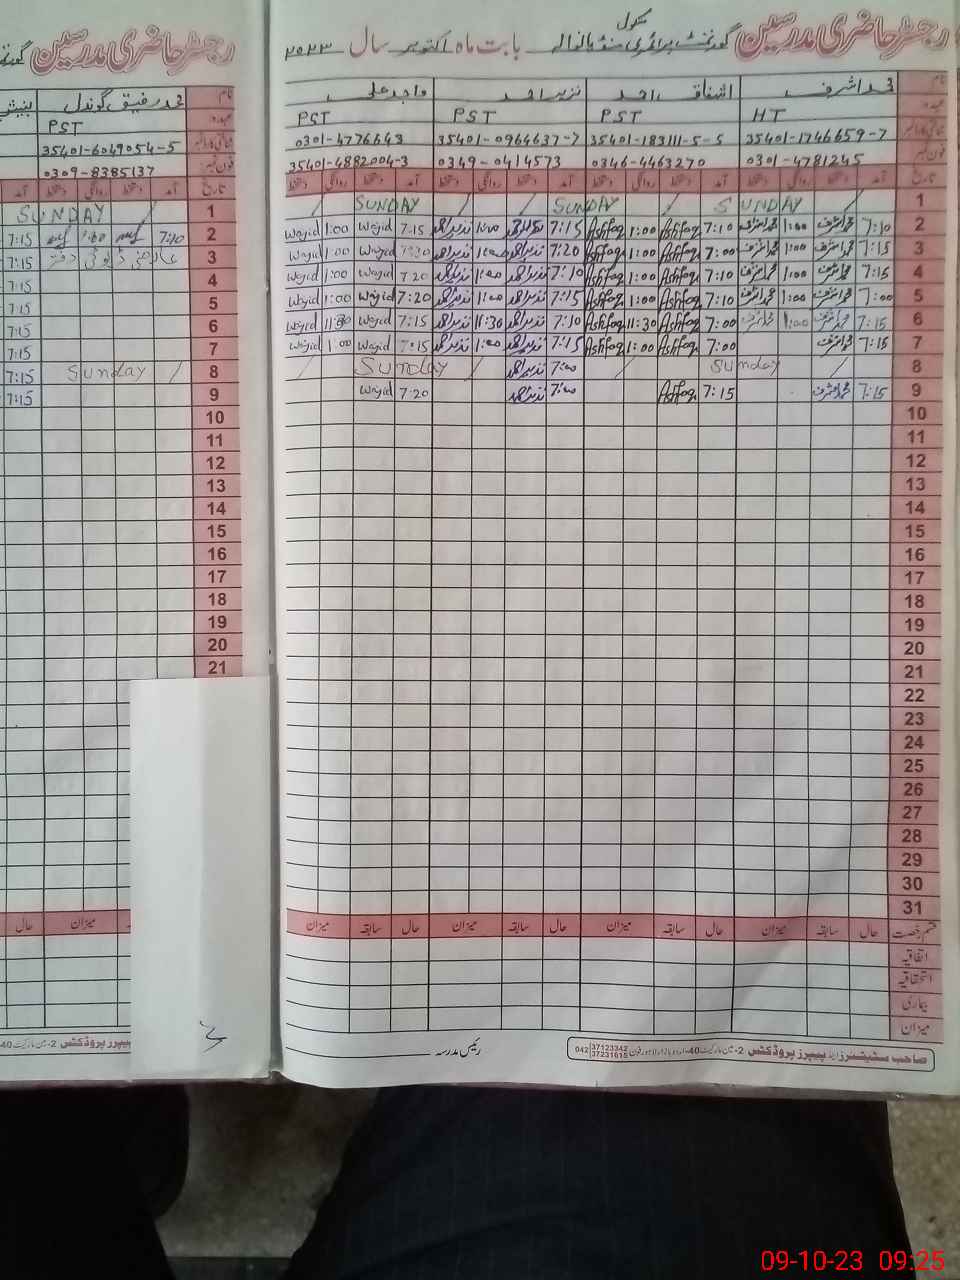 رجسٹر حاضری مدرسین گورنمنٹ پرائمری سکول بابت ماہ اکتوبر سال ۲۰۲۳
نام محمد اشرف اشفاق احمد نزیر احمد واجد علی
عہدہ HT PST PST PST
شناختی کارڈ نمبر 35401-1746659-7 35401-183111-5-5 35401-0964637-7 0301-4776643
فون نمبر 0301-4781245 0346-4463270 0349-0414573 35401-4882004-3
تاریخ آمد دستخط روانگی دستخط آمد دستخط روانگی دستخط آمد دستخط روانگی دستخط آمد دستخط روانگی دستخط
1 SUNDAY SUNDAY SUNDAY
2 7:10 محمد اشرف 1:00 محمد اشرف 7:10 Ashfaq 1:00 Ashfaq 7:15 نذیر احمد 1:00 نذیر احمد 7:15 Wajid 1:00 Wajid
3 7:15 محمد اشرف 1:00 محمد اشرف 7:00 Ashfaq 1:00 Ashfaq 7:20 نذیر احمد 1:00 نذیر احمد 7:20 Wajid 1:00 Wajid
4 7:15 محمد اشرف 1:00 محمد اشرف 7:10 Ashfaq 1:00 Ashfaq 7:10 نذیر احمد 1:00 نذیر احمد 7:20 Wajid 1:00 Wajid
5 7:00 محمد اشرف 1:00 محمد اشرف 7:10 Ashfaq 1:00 Ashfaq 7:15 نذیر احمد 1:00 نذیر احمد 7:20 Wajid 1:00 Wajid
6 7:15 محمد اشرف 1:00 محمد اشرف 7:00 Ashfaq 11:30 Ashfaq 7:10 نذیر احمد 11:30 نذیر احمد 7:15 Wajid 11:30 Wajid
7 7:15 محمد اشرف 7:00 Ashfaq 1:00 Ashfaq 7:15 نذیر احمد 1:00 نذیر احمد 7:15 Wajid 1:00 Wajid
8 Sunday 7:00 نذیر احمد Sunday
9 7:15 محمد اشرف 7:15 Ashfaq 7:00 نذیر احمد 7:20 Wajid
10
11
12
13
14
15
16
17
18
19
20
21
22
23
24
25
26
27
28
29
30
31
قسم رخصت حال سابقہ میزان حال سابقہ میزان حال سابقہ میزان حال سابقہ میزان
اتفاقیہ
استحقاقیہ
بیماری
میزان
رئیس مدرسہ
صاحب سٹیشنرز اینڈ پیپرز پروڈکٹس 2- مین مارکیٹ 40- اردو بازار لاہور فون 042 37123342 37231015
رجسٹر حاضری مدرسین
نام محمد رفیق گوندل
عہدہ PST
شناختی کارڈ نمبر 35401-6049054-5
فون نمبر 0309-8385137
تاریخ آمد دستخط روانگی دستخط آمد
1 SUNDAY
2 7:10 1:00 7:15
3 عارضی ڈیوٹی دفتر 7:15
4 7:15
5 7:15
6 7:15
7 7:15
8 Sunday 7:15
9 7:15
10
11
12
13
14
15
16
17
18
19
20
21
میزان حال
پیپرز پروڈکٹس 2- مین مارکیٹ 40
09-10-23 09:25